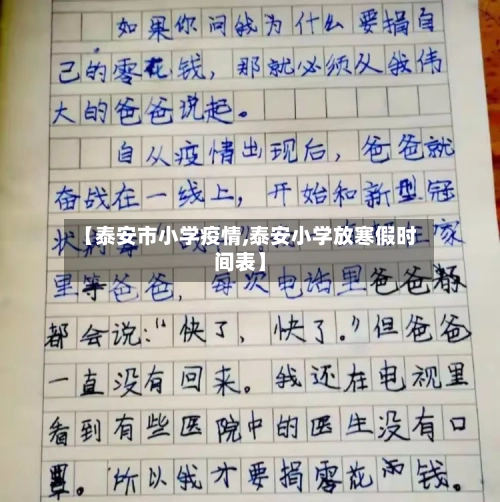 如果你问我为什么要捐自
己的零花钱，那就必须从我伟
大的爸爸说起。
自从疫情出现后，爸爸就
奋战在一线上，开始和新型冠
【泰安市小学疫情,泰安小学放寒假时
间表】
里等爸爸，每次电话里爸爸
都会说：“快了，快了。”但爸爸
一直没有回来。我还在电视里
看到有些医院中的医生没有口
罩。所以我才要捐零花钱。